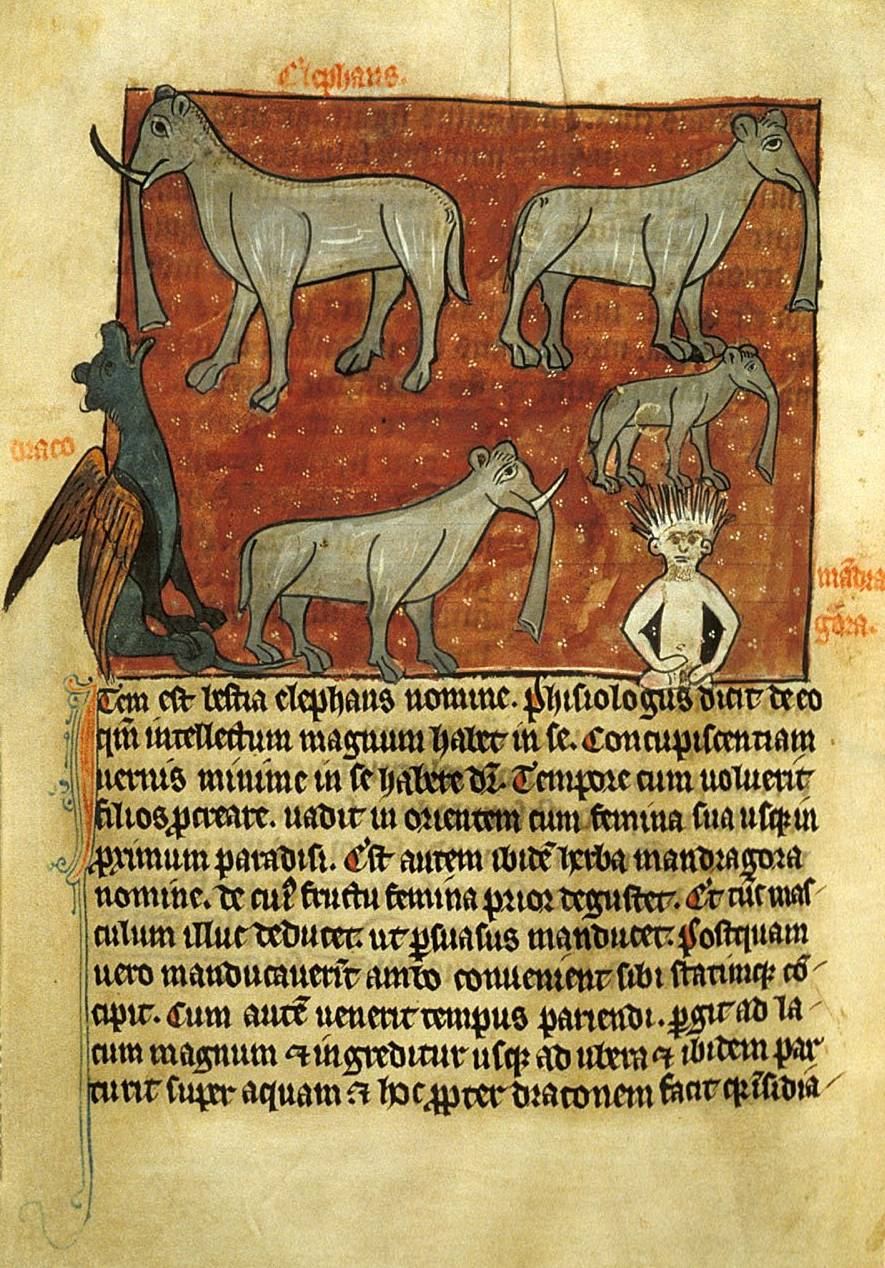 Elephans.
draco
mādra
gora.
Item est bestia elephans nomine. Phisiologus dicit de eo
qm̄ intellectum magnum habet in se. Concupiscentiam
uernis minime in se habere dr̄. Tempore cum uoluerit
filios ꝓcreare. uadit in orientem cum femina sua usqꝫ in
ꝓximum paradisi. Est autem ibidē herba mandragora
nomine. de cuiꝰ fructu femina prior degustet. Et tūc mas
culum illuc deducet. ut ꝑsuasus manducet. Postquam
uero manducauerīt ambo conuenient sibi statimqꝫ cō
cipit. Cum autē uenerit tempus pariendi. ꝑgit ad la
cum magnum ⁊ ingreditur usqꝫ ad ubera ⁊ ibidem par
turit super aquam ⁊ hoc ꝓpter draconem facit qꝫ īsidia